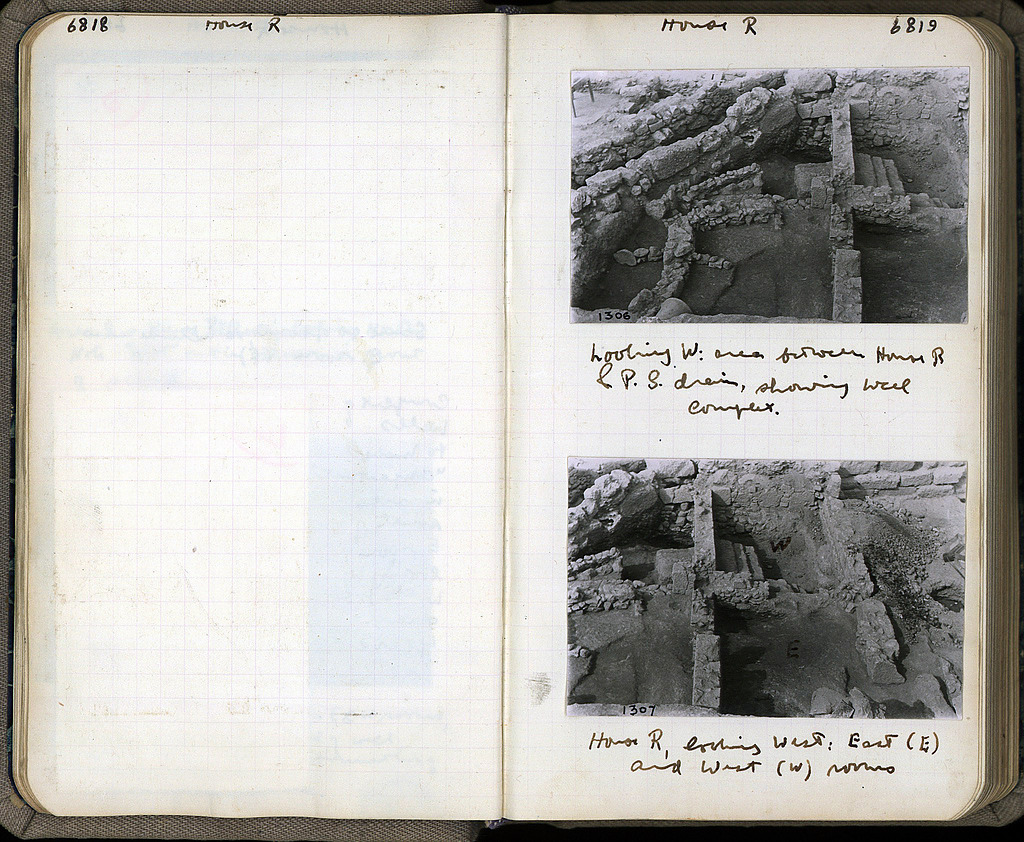 6818 House R
House R 6819
1306
Looking W: area between House R
& P. S. drain, showing well
complex.
W
E
1307
House R, looking West: East (E)
and West (W) rooms